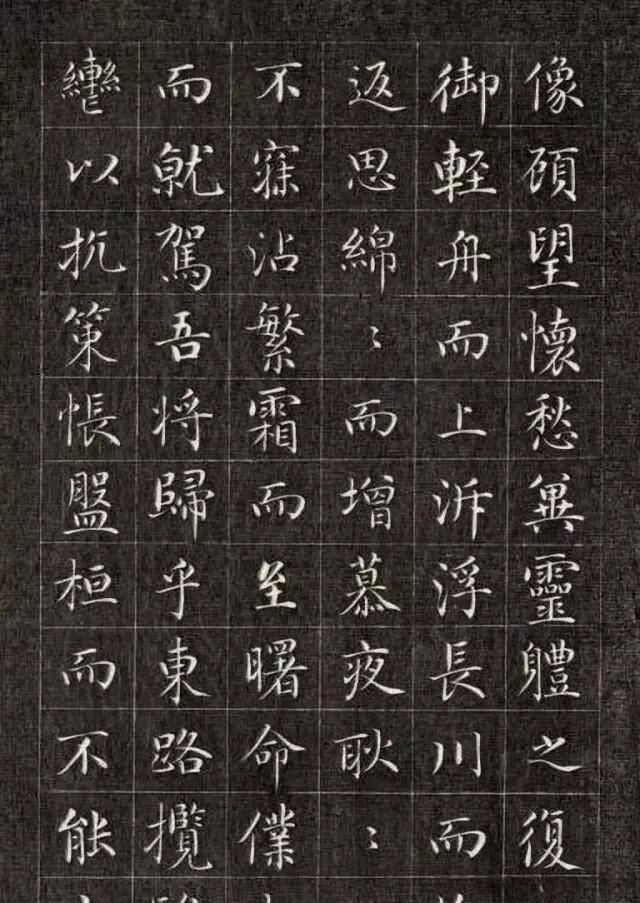 像碩望懷愁兾靈體之復
御輕舟而上泝浮長川而
返思綿〻而增慕夜耿〻
不寐沾繁霜而至曙命僕
而就駕吾将歸乎東路攬
轡以抗策悵盤桓而不能